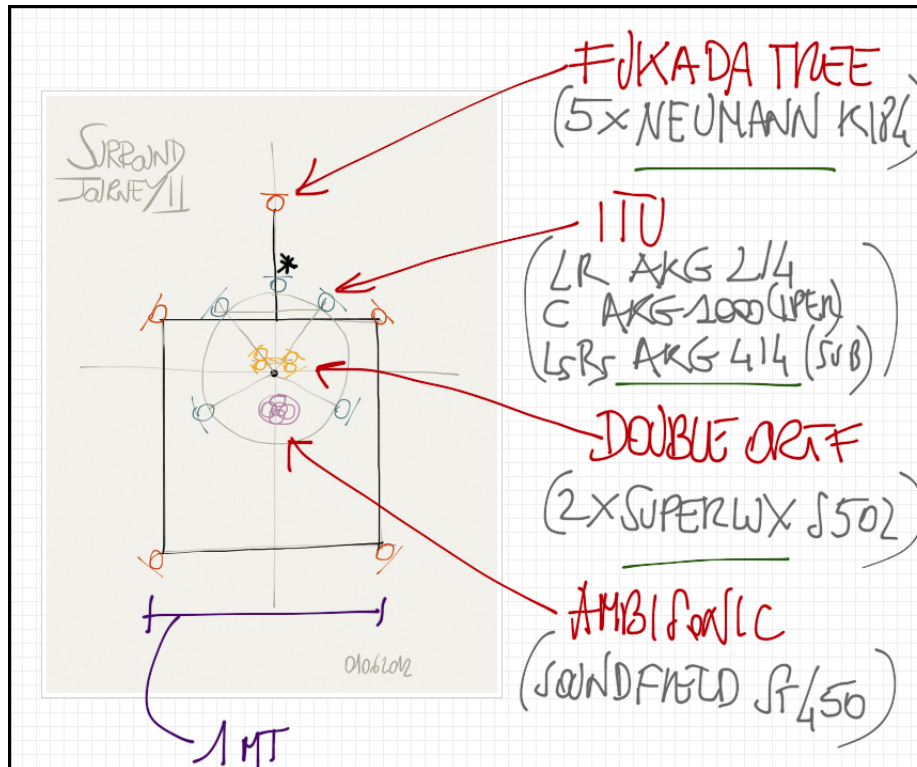 SURROUND
JOURNEY II
*
01062012
1 MT
FUKADA TREE
(5x NEUMANN K184)
ITU
(LR AKG 214
C AKG 1000 (IPER)
LsRs AKG 414 (SUB))
DOUBLE ORTF
(2X SUPERLUX S502)
AMBISONIC
(SOUNDFIELD ST450)